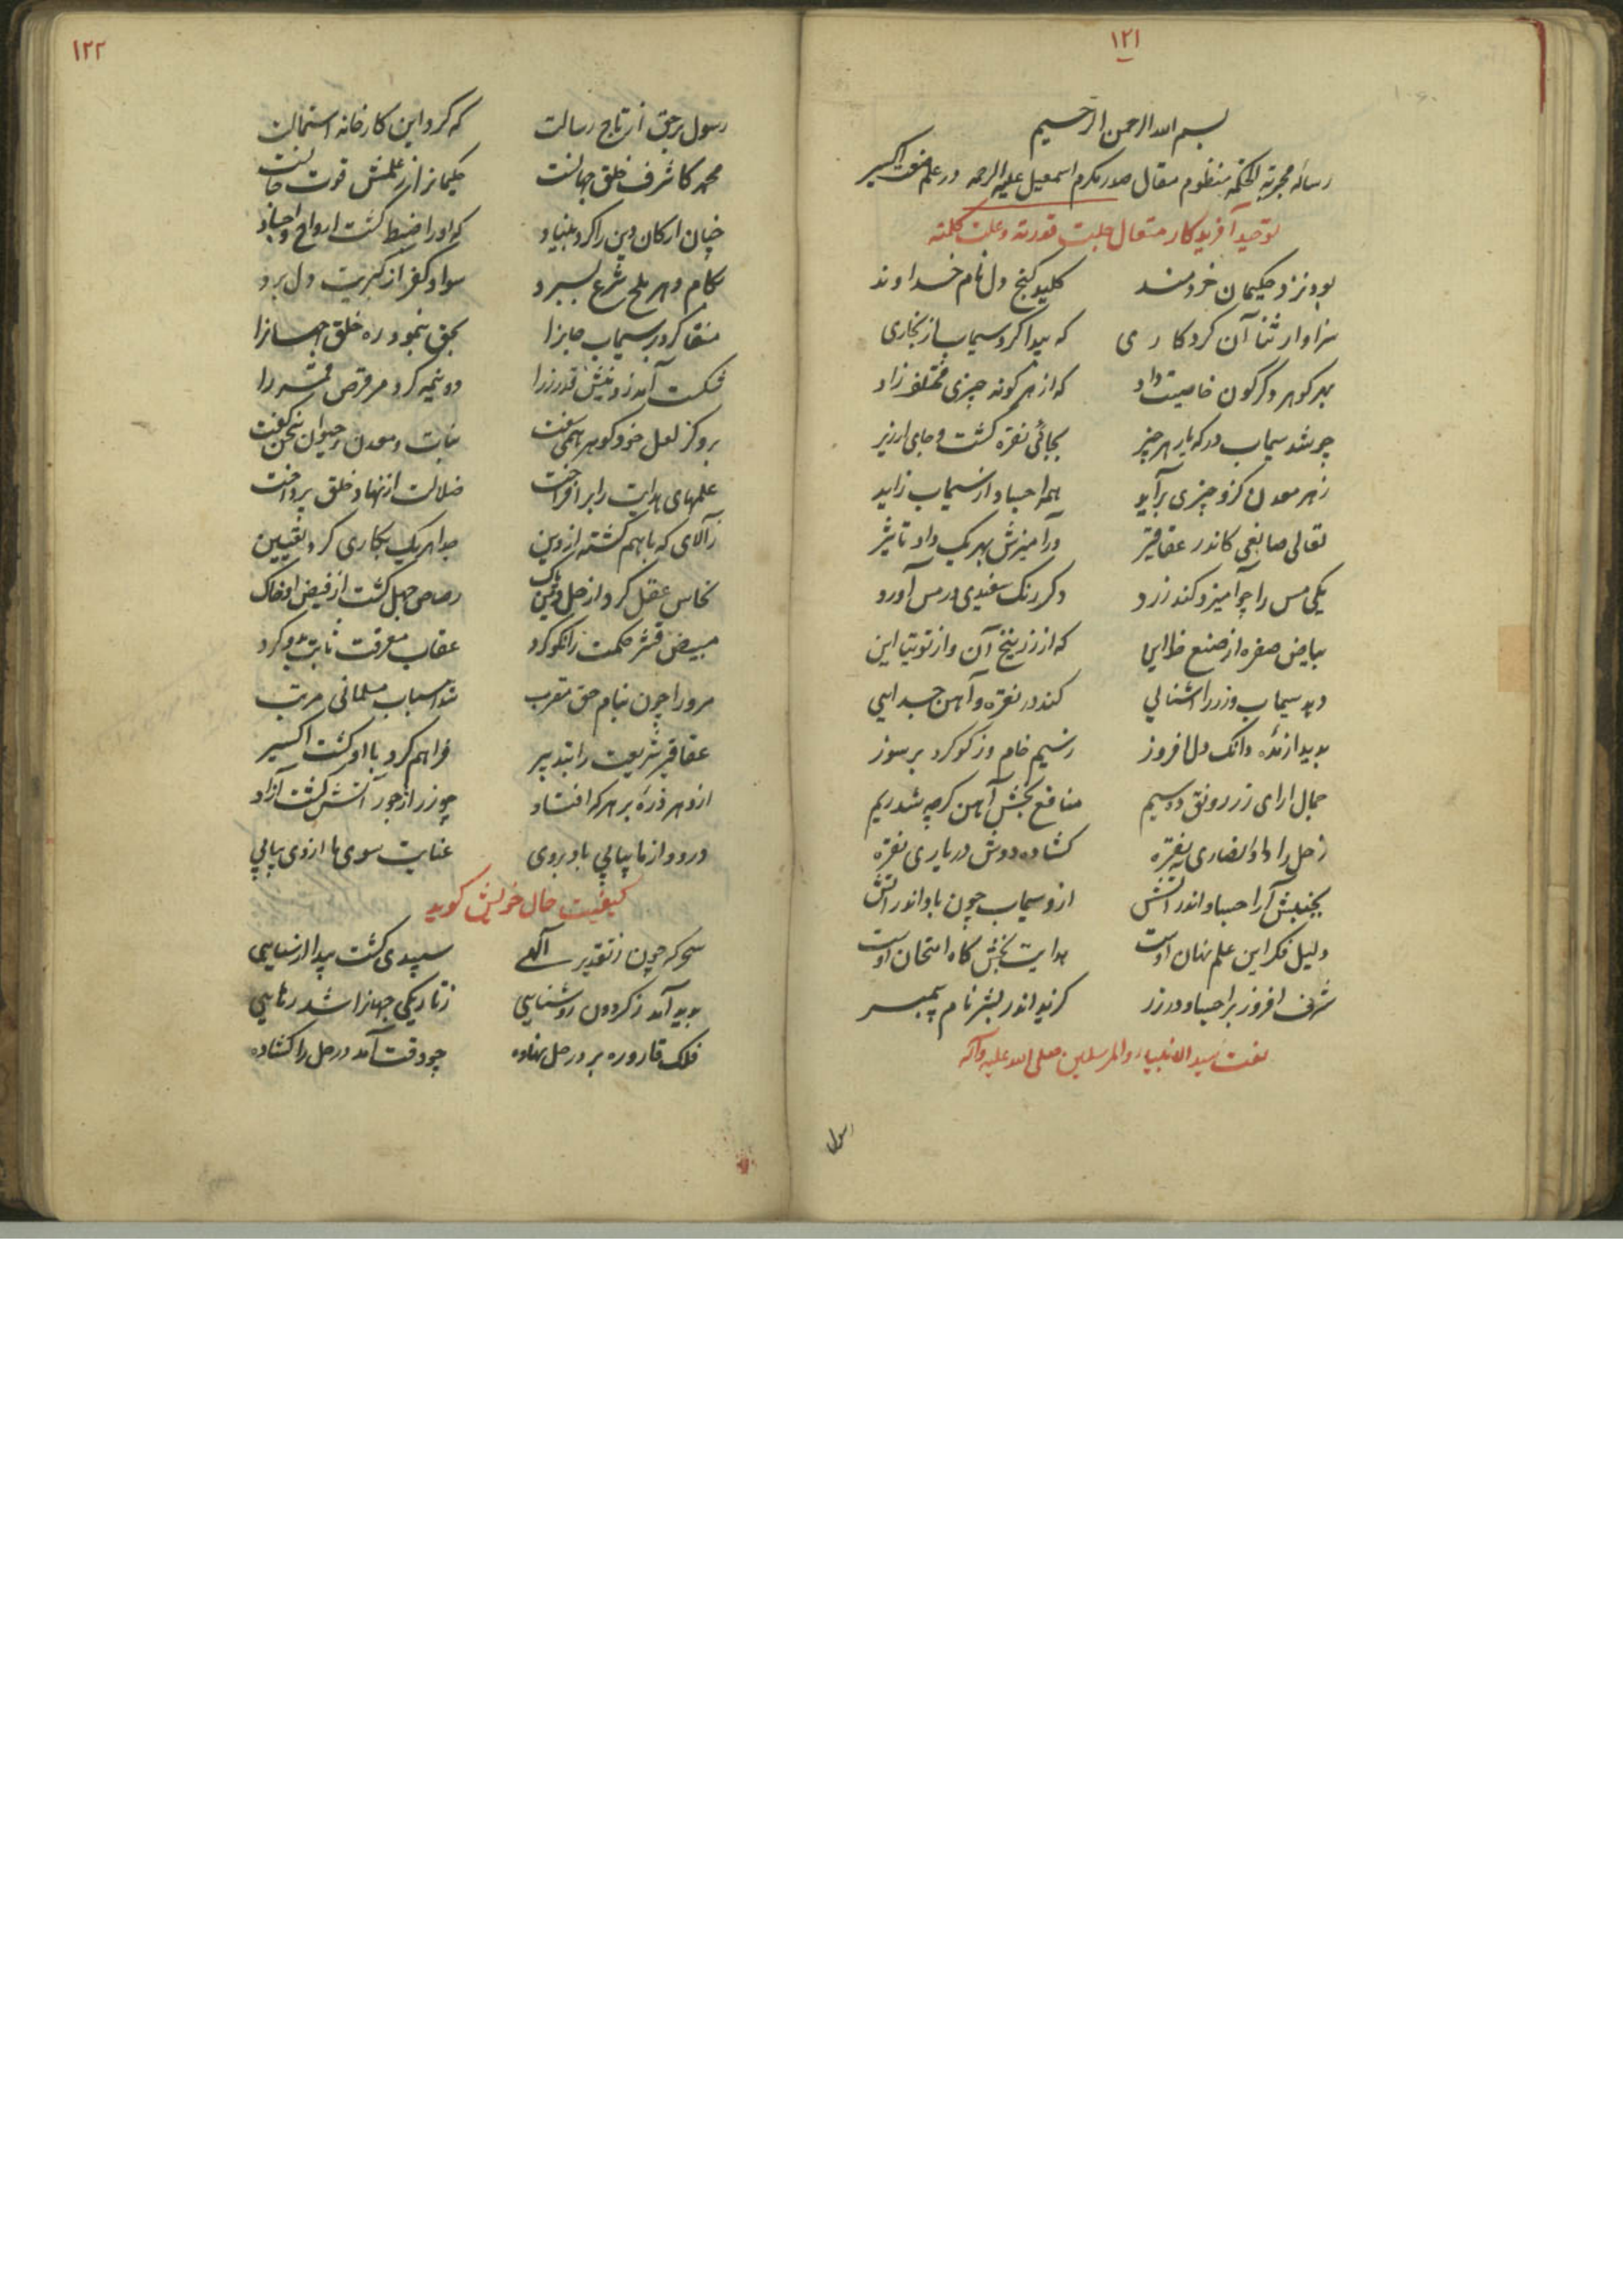 ۱۲۱
بسم الله الرحمن الرحیم
رساله مجربة الحکمه منظوم مقال صدر مکرم اسمعیل علیه الرحمه در علم صنعت اکسیر
توحید آفریدکار متعال جلت قدرته و علت کلمته
بود نزد حکیمان خردمند کلید کنج دل نام خداوند
سزاوار ثنا آن کردکاری که پیدا کرد سیماب از بخاری
بهر کوهر دکرکون خاصیت داد که از هر کونه چیزی مختلف زاد
چو شد سیماب در که یار هر چیز بجائی نقره کشت و جای ارزیز
ز هر معدن کزو چیزی برآید همه اجساد از سیماب زاید
تعالی صانعی کاندر عقاقیر در آمیزش بهر یک داد تاثیر
یکی مس را چو آمیزد کند زرد دکر رنک سفیدی در مس آورد
بیاض صفره از صنع خدایی که از زرنیخ آن و از توتیا این
دهد سیماب و زر را آشنایی کند در نقره و آهن جدایی
پدید ازنده دانک دل افروز ز سیم خام وز کوکرد پر سوز
جمال ارای زر رونق ده سیم منافع بخش آهن کرچه شد ریم
زحل را داد انصاری به نقره کشاده دوش در یاری نقره
بجنبش آرد اجساد اندر آتش ازو سیماب چون باد اندر آتش
دلیل فکر این علم نهان اوست هدایت بخش کاه امتحان اوست
شرف افروز بر اجساد در زر کزید اندر بشر نام پیمبر
نعت سید الانبیاء و المرسلین صلی الله علیه و آله
رسول
۱۲۲
رسول بر حق از تاج رسالت که کرد این کارخانه استمالت
محمد کاشرف خلق جهانست حکیمانرا ز علمش قوت جانست
چنان ارکان دین را کرد بنیاد که او را ضبط کشت ارواح و اجساد
بکام دهر ملح شرع بسپرد سواد کفر از کبریت دل برد
منقا کرد سیماب جانرا بحق بنمود ره خلق جهانرا
شکست آمد ز دینش قدر زر را دو نیمه کرد مر قرص قمر را
برو کز لعل خود کوهر همی سفت نبات و معدن و حیوان سخن کفت
علمهای هدایت را بر افراخت ضلالت از نهاد خلق پرداخت
ز آلای که باهم کشته از دین جدا هر یک بکاری کرد تعیین
نحاس عقل کرد از حل و شک رصاص جهل کشت از فیض او خاک
مبیض قشر حکمت را نکو کرد عقاب معرفت ثابت بدو کرد
مرو را چون بنام حق مقرب شد اسباب مسلمانی مرتب
عقاقیر شریعت را بتدبیر فراهم کرد با او کشت اکسیر
ازو هر ذره بر هر که افتاد چو زر از جور آتش کشت آزاد
درود از ما پیاپی باد بر وی عنایت سوی ما از وی پیاپی
کیفیت حال خویش کوید
سحر که چون ز تقدیر آلهی سپیدی کشت پیدا از سیاهی
پدید آمد ز کردون روشنایی ز تاریکی جهانرا شد رهایی
فلک قاروره بر در حل نهاده چو وقت آمد در حل را کشاده